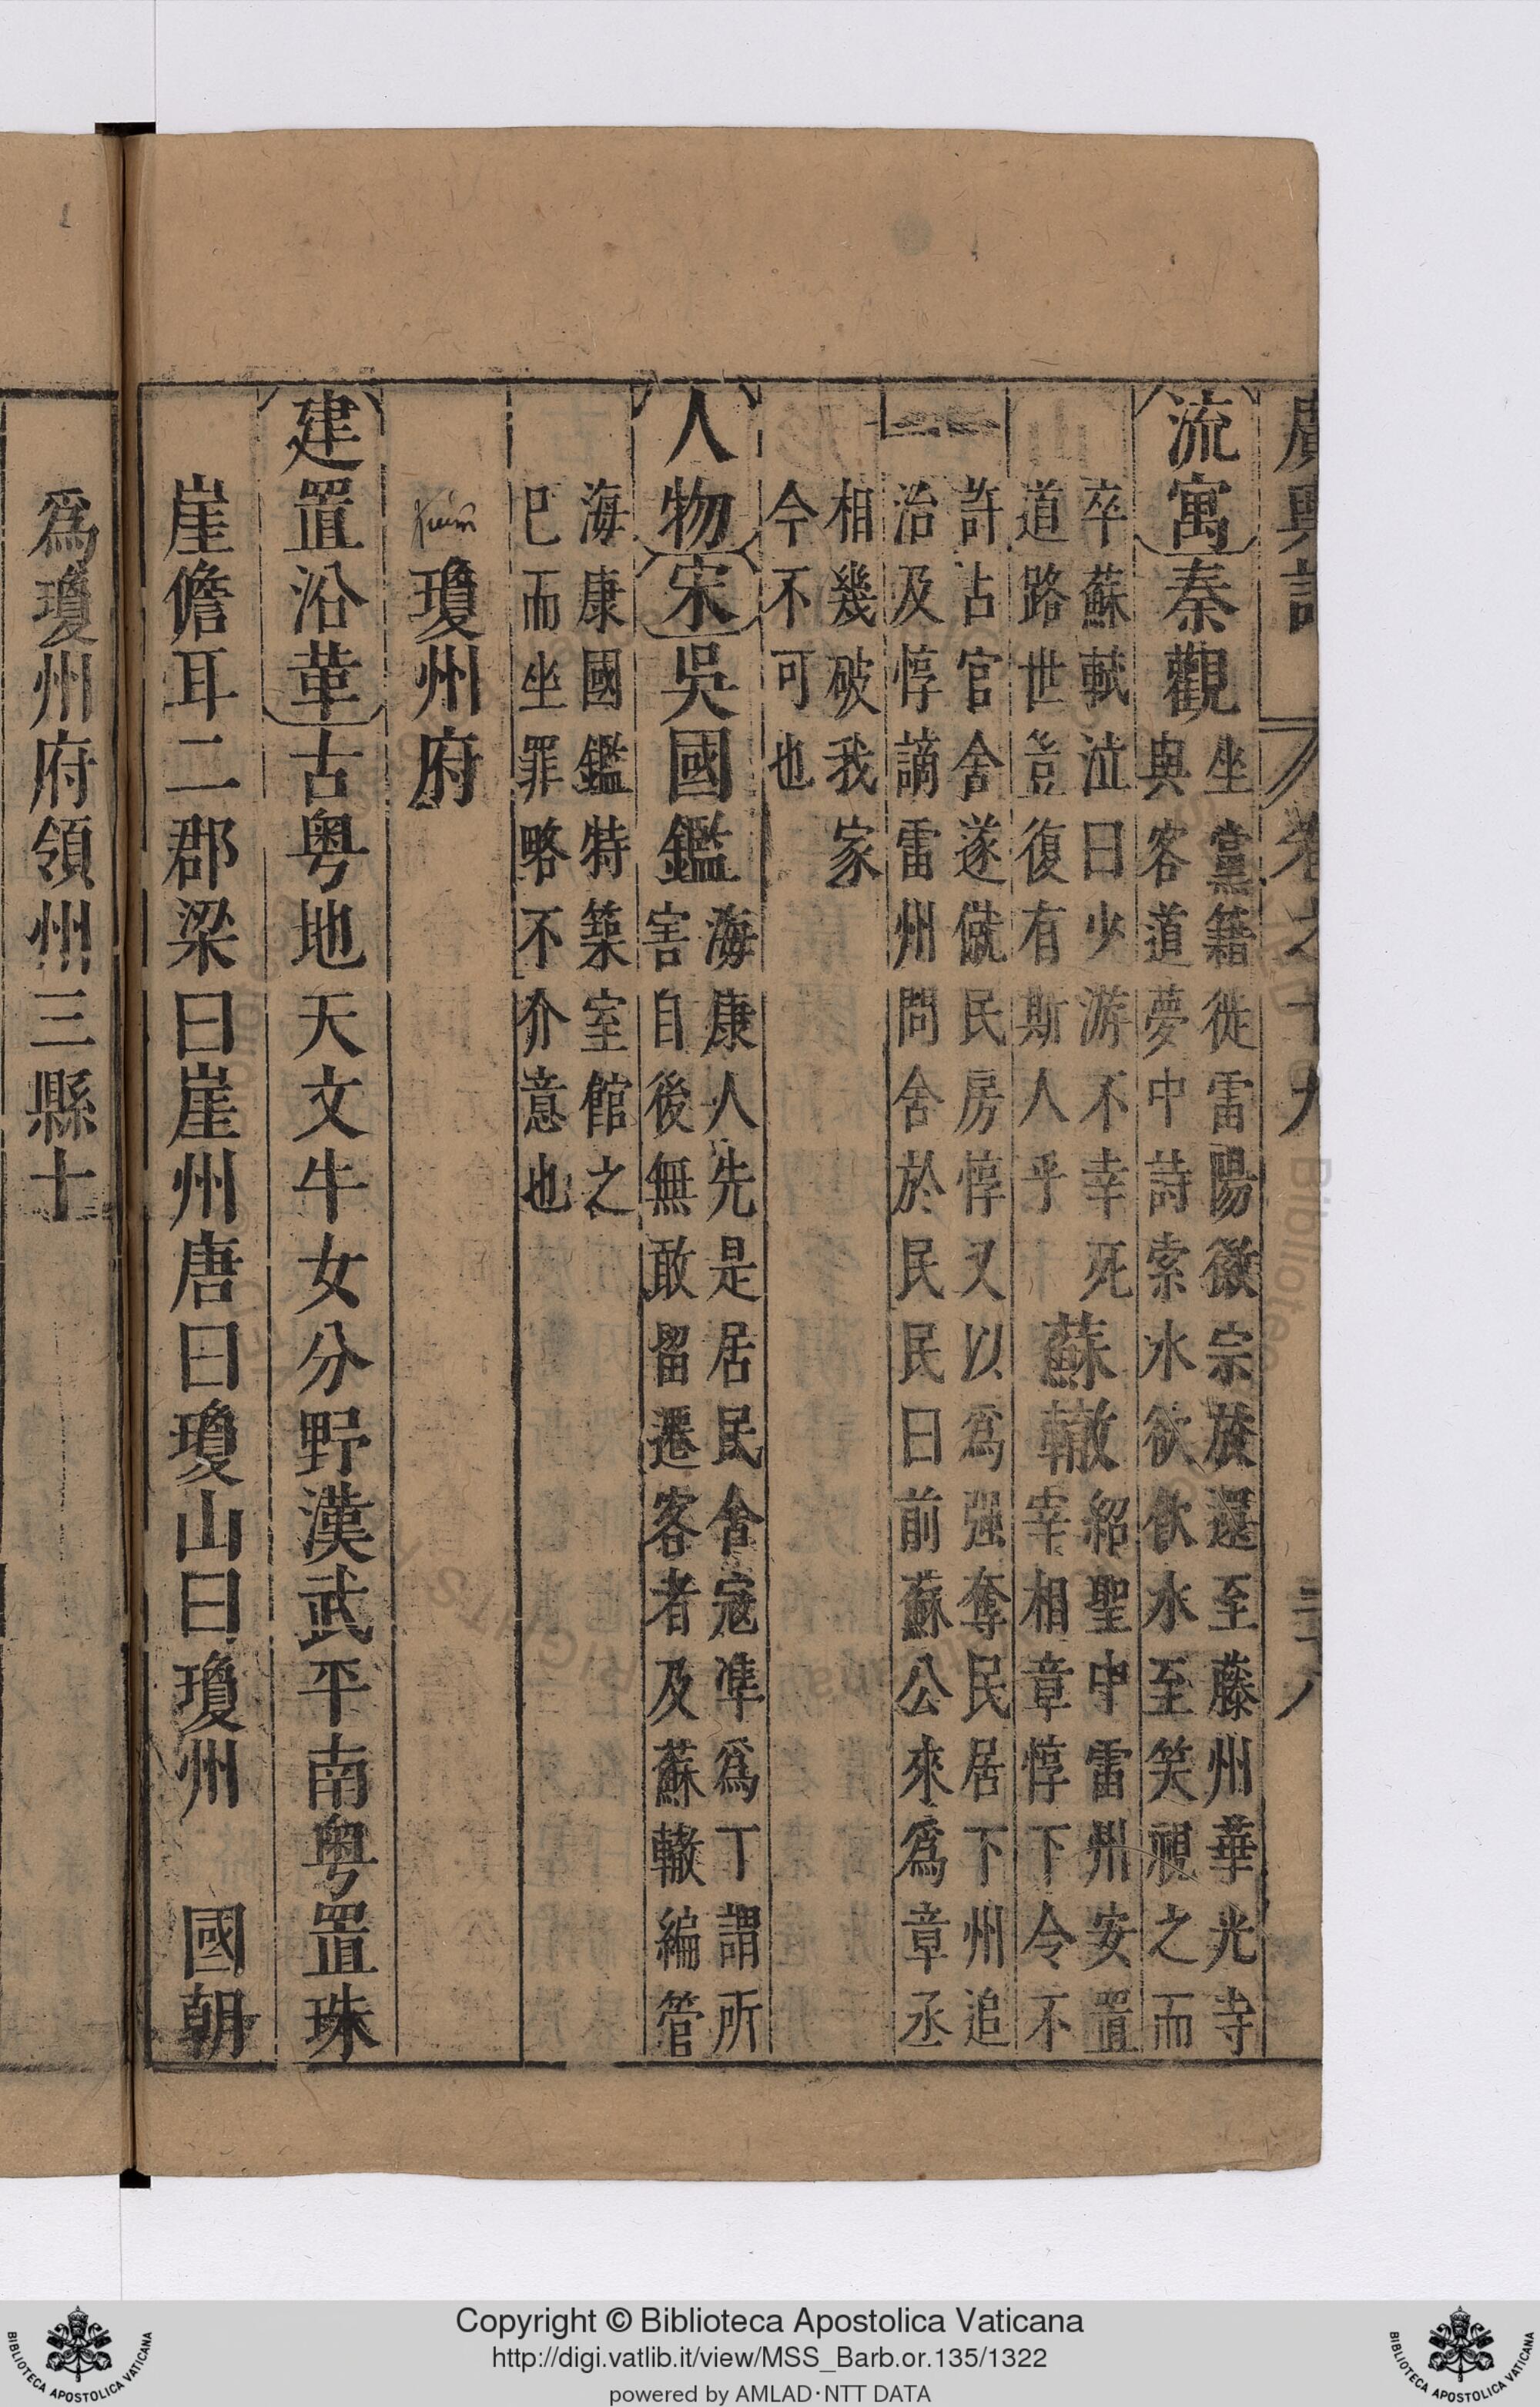 廣輿記 卷之十九
流寓秦觀坐黨籍徙雷陽徽宗放還至藤州華光寺
與客道夢中詩索水欲飲水至笑視之而
卒蘇軾泣曰少游不幸死
道路世豈復有斯人乎蘇轍紹聖中雷州安置
宰相章惇下令不
許占官舍遂僦民房惇又以爲强奪民居下州追
治及惇謫雷州問舍於民民曰前蘇公來爲章丞
相幾破我家
今不可也
人物宋吳國鑑海康人先是居民舍寇準爲丁謂所
害自後無敢留遷客者及蘇轍編管
海康國鑑特築室館之
已而坐罪略不介意也
瓊州府
建置沿革古粤地天文牛女分野漢武平南粤置珠
崖儋耳二郡梁曰崖州唐曰瓊山曰瓊州 國朝
爲瓊州府領州三縣十
Copyright © Biblioteca Apostolica Vaticana
http://digi.vatlib.it/view/MSS_Barb.or.135/1322
powered by AMLAD·NTT DATA
BIBLIOTECA APOSTOLICA VATICANA
BIBLIOTECA APOSTOLICA VATICANA